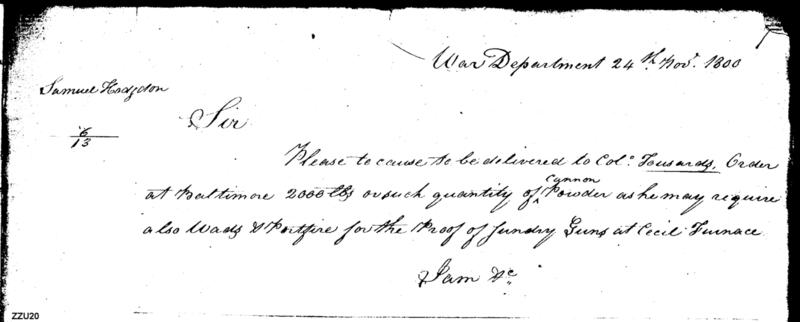 War Department 24th. Nov. 1800
Samuel Hodgdon
6
13
Sir
Please to cause to be delivered to Colo. Tousards, Order
at Baltimore 2000 lbs or such quantity of ^ Cannon Powder as he may require
also Wads & Portfire for the Proof of sundry Guns at Cecil Furnace.
I am &c.
ZZU20